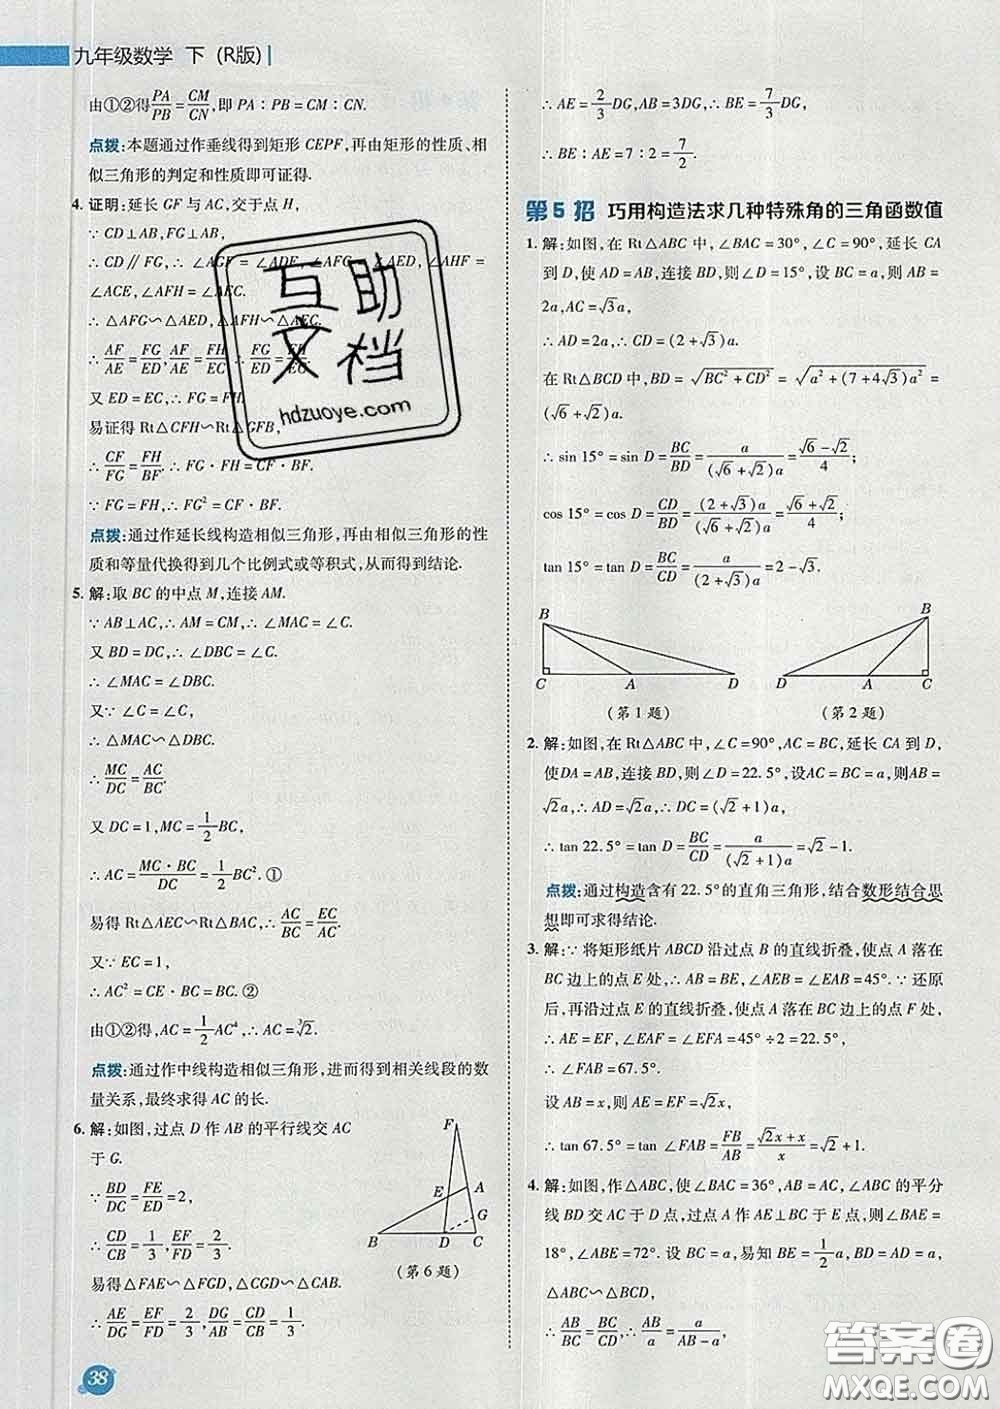 九年级数学 下 (R版)
由①②得PA/PB=CM/CN,即 PA∶PB=CM∶CN.
点拨:本题通过作垂线得到矩形 CEPF,再由矩形的性质、相
似三角形的判定和性质即可证得.
4. 证明:延长 GF 与 AC,交于点 H,
∵ CD⊥AB,FG⊥AB,
∴ CD∥FG,∴ ∠AGF=∠ADE,∠AFG=∠AED,∠AHF=
∠ACE,∠AFH=∠AEC.
∴ △AFG∽△AED,△AFH∽△AEC.
∴ AF/AE=FG/ED,AF/AE=FH/EC.∴ FG/ED=FH/EC.
又 ED=EC,∴ FG=FH.
易证得 Rt△CFH∽Rt△GFB,
∴ CF/FG=FH/BF.∴ FG·FH=CF·BF.
∵ FG=FH,∴ FG²=CF·BF.
点拨:通过作延长线构造相似三角形,再由相似三角形的性
质和等量代换得到几个比例式或等积式,从而得到结论.
5. 解:取 BC 的中点 M,连接 AM.
∵ AB⊥AC,∴ AM=CM,∴ ∠MAC=∠C.
又 BD=DC,∴ ∠DBC=∠C.
∴ ∠MAC=∠DBC.
又∵ ∠C=∠C,
∴ △MAC∽△DBC.
∴ MC/DC=AC/BC.
又 DC=1,MC=1/2BC,
∴ AC=MC·BC/DC=1/2BC². ①
易得 Rt△AEC∽Rt△BAC,∴ AC/BC=EC/AC.
又∵ EC=1,
∴ AC²=CE·BC=BC. ②
由①②得,AC=1/2AC⁴,∴ AC=∛2.
点拨:通过作中线构造相似三角形,进而得到相关线段的数
量关系,最终求得 AC 的长.
6. 解:如图,过点 D 作 AB 的平行线交 AC
于 G.
∵ BD/DC=FE/ED=2,
∴ CD/CB=1/3,EF/FD=2/3.
易得△FAE∽△FGD,△CGD∽△CAB,
∴ AE/DG=EF/FD=2/3,DG/AB=CD/CB=1/3.
F
E
A
G
B
D
C
(第 6 题)
∴ AE=2/3DG,AB=3DG,∴ BE=7/3DG,
∴ BE∶AE=7∶2=7/2.
第 5 招 巧用构造法求几种特殊角的三角函数值
1. 解:如图,在 Rt△ABC 中,∠BAC=30°,∠C=90°,延长 CA
到 D,使 AD=AB,连接 BD,则∠D=15°,设 BC=a,则 AB=
2a,AC=√3a.
∴ AD=2a,∴ CD=(2+√3)a.
在 Rt△BCD 中,BD=√(BC²+CD²)=√(a²+(7+4√3)a²)=
(√6+√2)a.
∴ sin 15°=sin D=BC/BD=a/(√6+√2)a=(√6-√2)/4;
cos 15°=cos D=CD/BD=(2+√3)a/(√6+√2)a=(√6+√2)/4;
tan 15°=tan D=BC/CD=a/(2+√3)a=2-√3.
B
C
A
D
(第 1 题)
B
D
A
C
(第 2 题)
2. 解:如图,在 Rt△ABC 中,∠C=90°,AC=BC,延长 CA 到 D,
使DA=AB,连接 BD,则∠D=22.5°,设AC=BC=a,则AB=
√2a,∴ AD=√2a,∴ DC=(√2+1)a,
∴ tan 22.5°=tan D=BC/CD=a/(√2+1)a=√2-1.
点拨:通过构造含有 22.5°的直角三角形,结合数形结合思
想即可求得结论.
3. 解:∵ 将矩形纸片 ABCD 沿过点 B 的直线折叠,使点 A 落在
BC 边上的点 E 处,∴ AB=BE,∠AEB=∠EAB=45°.∵ 还原
后,再沿过点 E 的直线折叠,使点 A 落在 BC 边上的点 F 处,
∴ AE=EF,∠EAF=∠EFA=45°÷2=22.5°.
∴ ∠FAB=67.5°.
设 AB=x,则 AE=EF=√2x,
∴ tan 67.5°=tan ∠FAB=FB/AB=(√2x+x)/x=√2+1.
4. 解:如图,作△ABC,使∠BAC=36°,AB=AC,∠ABC 的平分
线 BD 交 AC 于 D 点,过点 A 作 AE⊥BC 于 E 点,则∠BAE=
18°,∠ABE=72°. 设 BC=a,易知 BE=1/2a,BD=AD=a,
△ABC∽△BDC
∴ AB/BC=BC/CD,∴ AB/a=a/(AB-a),
38
互助
文档
hdzuoye.com
答案圈
MXQE.COM